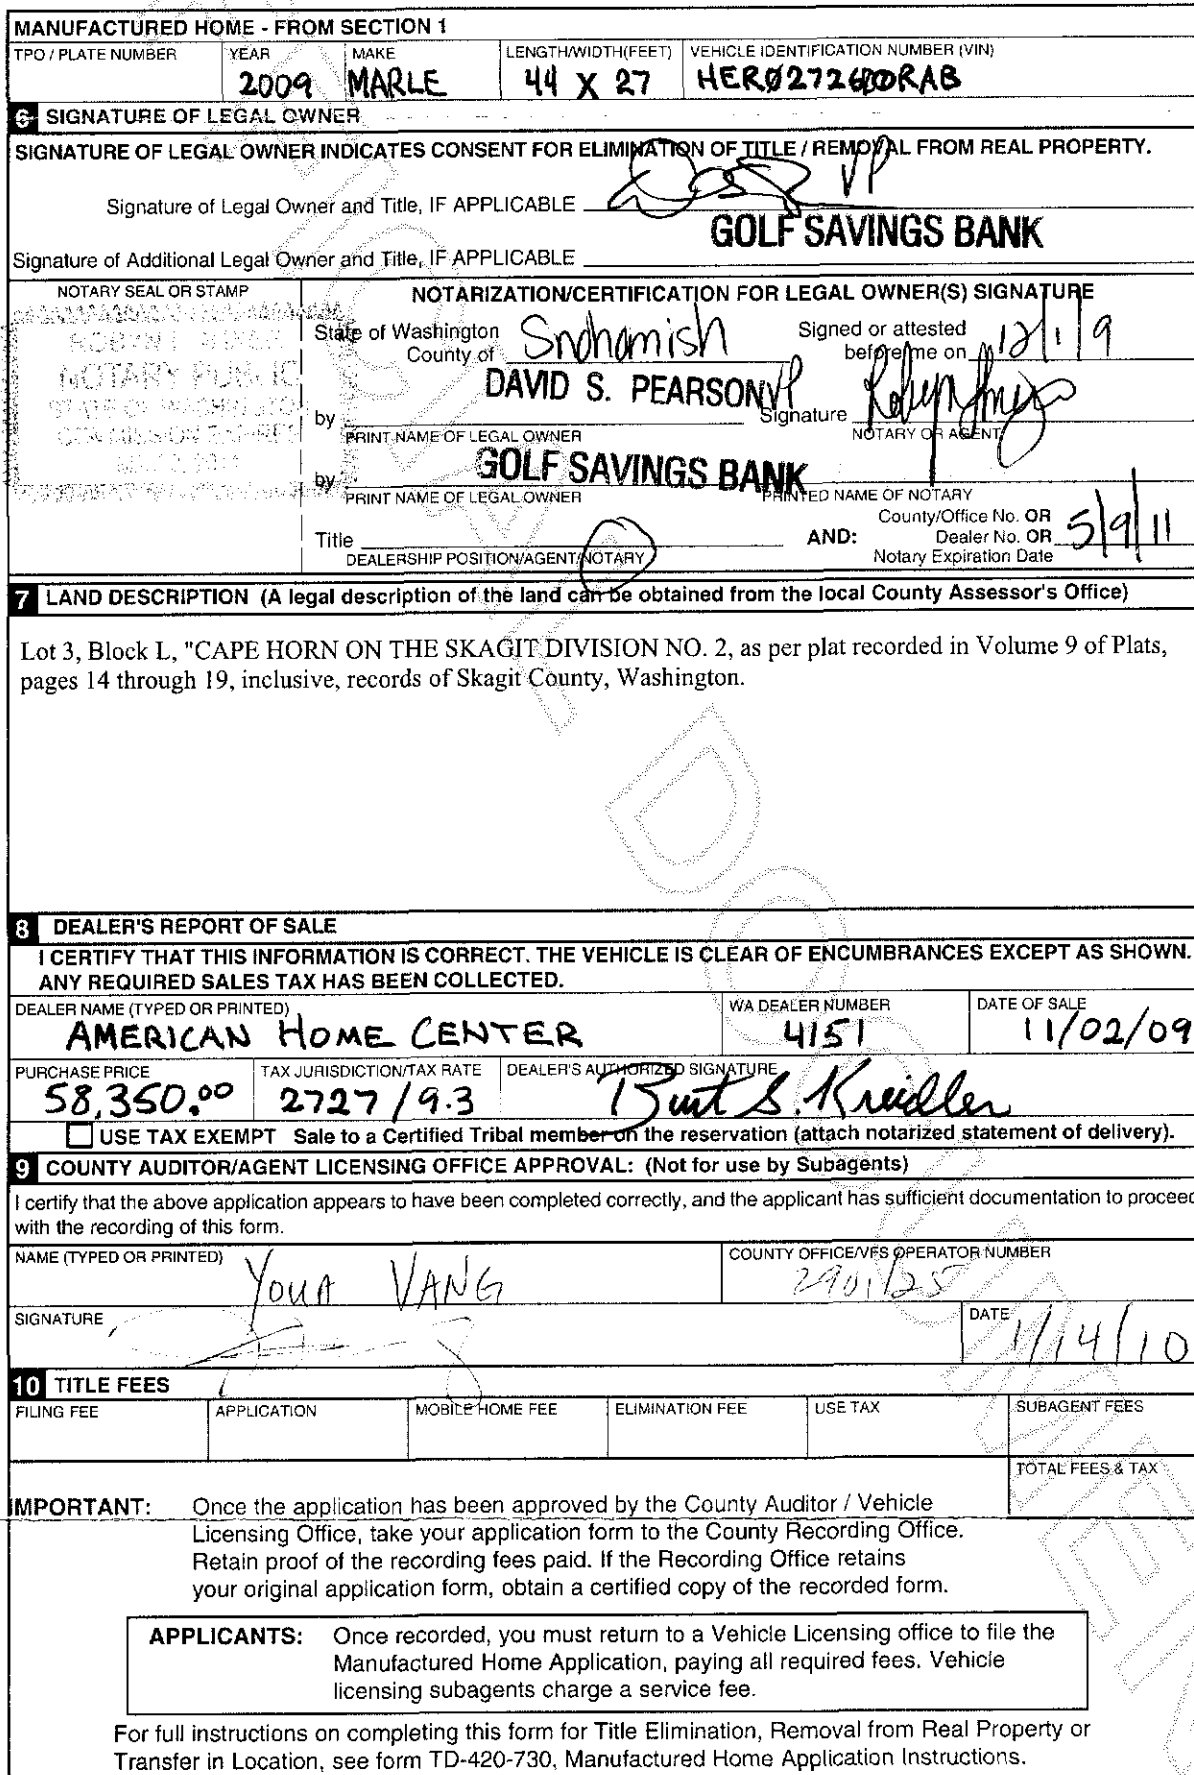 MANUFACTURED HOME - FROM SECTION 1
TPO / PLATE NUMBER YEAR MAKE LENGTH/WIDTH(FEET) VEHICLE IDENTIFICATION NUMBER (VIN)
2009 MARLE 44 X 27
6 SIGNATURE OF LEGAL OWNER
SIGNATURE OF LEGAL OWNER INDICATES CONSENT FOR ELIMINATION OF TITLE / REMOVAL FROM REAL PROPERTY.
Signature of Legal Owner and Title, IF APPLICABLE VP
GOLF SAVINGS BANK
Signature of Additional Legal Owner and Title, IF APPLICABLE
NOTARY SEAL OR STAMP NOTARIZATION/CERTIFICATION FOR LEGAL OWNER(S) SIGNATURE
State of Washington Snohomish Signed or attested
County of before me on 12/1/9
NOTARY PUBLIC
DAVID S. PEARSON VP
by Signature
PRINT NAME OF LEGAL OWNER NOTARY OR AGENT
GOLF SAVINGS BANK
by
PRINT NAME OF LEGAL OWNER PRINTED NAME OF NOTARY
County/Office No. OR
Title AND: Dealer No. OR 5/9/11
DEALERSHIP POSITION/AGENT/NOTARY Notary Expiration Date
7 LAND DESCRIPTION (A legal description of the land can be obtained from the local County Assessor's Office)
Lot 3, Block L, "CAPE HORN ON THE SKAGIT DIVISION NO. 2, as per plat recorded in Volume 9 of Plats,
pages 14 through 19, inclusive, records of Skagit County, Washington.
8 DEALER'S REPORT OF SALE
I CERTIFY THAT THIS INFORMATION IS CORRECT. THE VEHICLE IS CLEAR OF ENCUMBRANCES EXCEPT AS SHOWN.
ANY REQUIRED SALES TAX HAS BEEN COLLECTED.
DEALER NAME (TYPED OR PRINTED) WA DEALER NUMBER DATE OF SALE
AMERICAN HOME CENTER 4151 11/02/09
PURCHASE PRICE TAX JURISDICTION/TAX RATE DEALER'S AUTHORIZED SIGNATURE
58,350.00 2727 / 9.3 Burt S. Kreidler
USE TAX EXEMPT Sale to a Certified Tribal member on the reservation (attach notarized statement of delivery).
9 COUNTY AUDITOR/AGENT LICENSING OFFICE APPROVAL: (Not for use by Subagents)
I certify that the above application appears to have been completed correctly, and the applicant has sufficient documentation to proceed
with the recording of this form.
NAME (TYPED OR PRINTED) COUNTY OFFICE/VFS OPERATOR NUMBER
YOUA VANG
SIGNATURE DATE
1/14/10
10 TITLE FEES
FILING FEE APPLICATION MOBILE HOME FEE ELIMINATION FEE USE TAX SUBAGENT FEES
TOTAL FEES & TAX
IMPORTANT: Once the application has been approved by the County Auditor / Vehicle
Licensing Office, take your application form to the County Recording Office.
Retain proof of the recording fees paid. If the Recording Office retains
your original application form, obtain a certified copy of the recorded form.
APPLICANTS: Once recorded, you must return to a Vehicle Licensing office to file the
Manufactured Home Application, paying all required fees. Vehicle
licensing subagents charge a service fee.
For full instructions on completing this form for Title Elimination, Removal from Real Property or
Transfer in Location, see form TD-420-730, Manufactured Home Application Instructions.